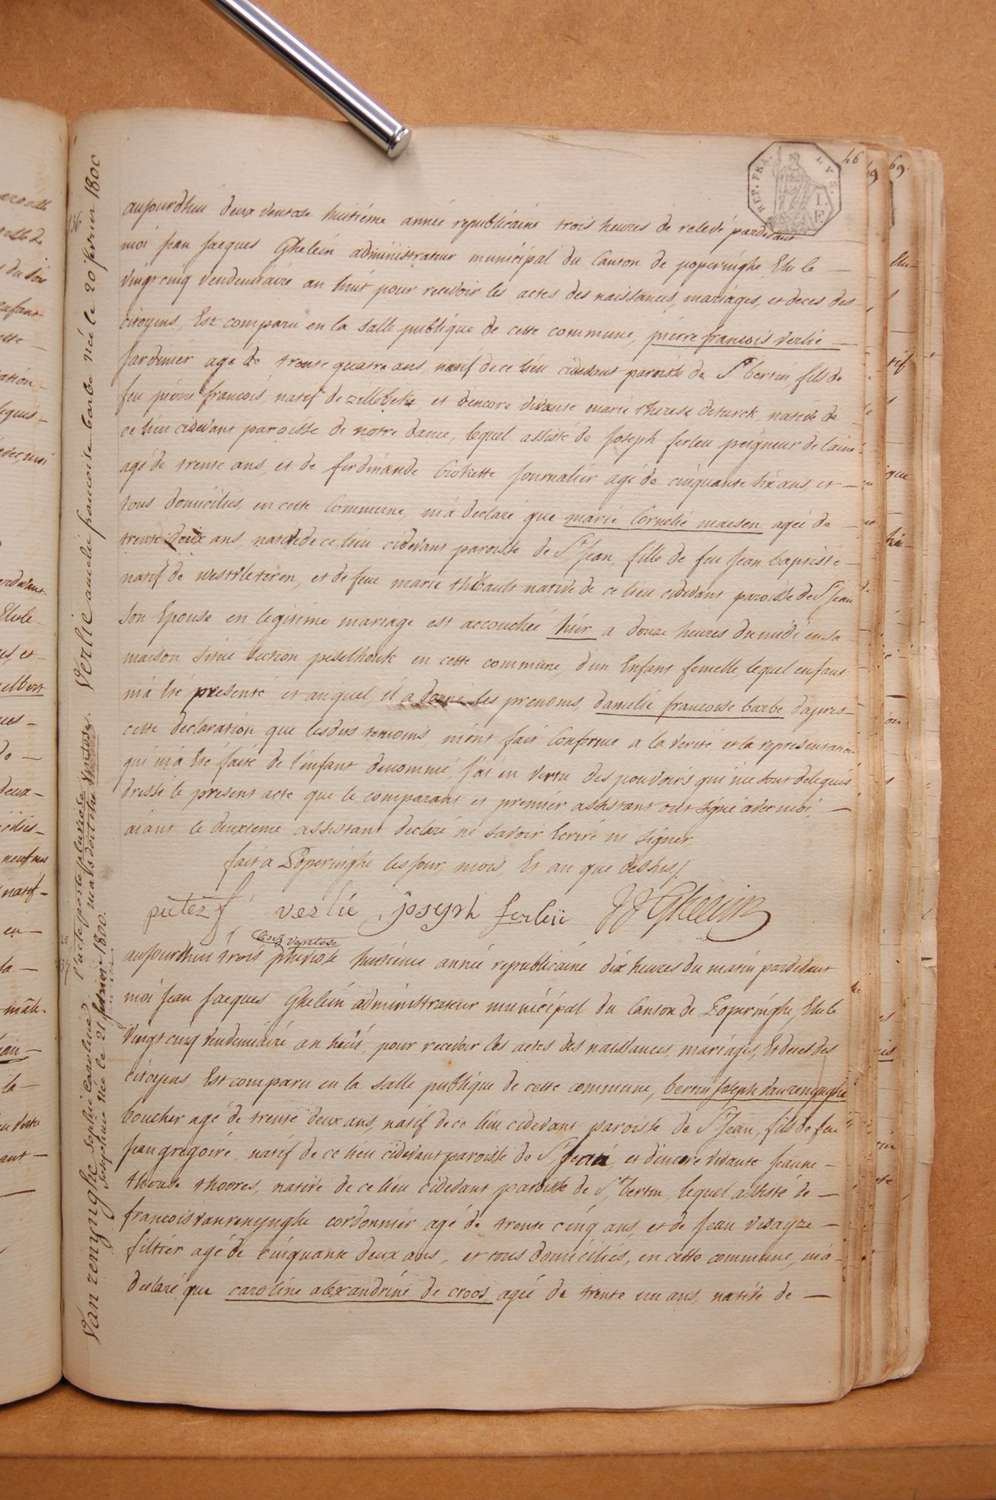 46
REP. FRA.
aujourdhui deux ventose huitiéme année republicaine trois heures de relevé pardevant
moi jean jacques Ghelein administrateur municipal du Canton de poperinghe Elu le —
vingt cinq vendemiaire an huit pour recevoir les actes des naissances, mariages, et deces des
citoyens, Est comparu en la salle publique de cette commune, pierre francois verlie —
jardinier age de trente quatre ans natif de ce lieu cidevant paroisse de St bertin fils de
feu pierre francois natif de zillebeke et d'encore vivante marie therese deturck native de
ce lieu cidevant paroisse de notre dame, lequel assisté de joseph ferleu peigneur de laine
agé de trente ans, et de ferdinande journalier agé de cinquante six ans, et —
tous domiciliés en cette commune, m'a declaré que marie Cornelie maesen agée de —
trente deux ans native de ce lieu cidevant paroisse de St jean, fille de feu jean baptiste —
natif de westvleteren, et de feue marie thibault native de ce lieu cidevant paroisse de St jean
son Epouse en legitime mariage est accouchée hier a douze heures du midi en sa
maison situé section peselhouk en cette commune, d'un Enfant femelle lequel enfant
m'a Eté présenté et auquel il a donné les prenoms, d'amelie francoise barbe, d'apres
cette declaration que lesdits temoins m'ont fait Conforme a la verité et la representation
qui m'a Eté faite de l'enfant denommé j'ai en vertu des pouvoirs qui me sont delegués
dressé le present acte que le comparant et premier assistant ont signé avec moi, —
aiant le deuxieme assistant declaré ne savoir Ecrire ni signer
fait a Poperinghe les jour, mois, Et an que dessus /
pieter f verlie joseph ferleu JJ Ghelein
cinq ventose
aujourdhui trois pluviose huitiéme année republicaine dix heures du matin pardevant
moi jean jacques Ghelein administrateur municipal du Canton de Poperinghe, Elu le
vingt cinq vendemiaire an huit pour recevoir les actes des naissances, mariages, Et deces des
citoyens Est comparu en la salle publique de cette commune, bertin joseph vanrenynghe
boucher agé de trente deux ans, natif de ce lieu cidevant paroisse de St jean, fils de feu
jean gregoire, natif de ce lieu cidevant paroisse de St jean et d'encore vivante jeanne —
therese thoores, native de ce lieu cidevant paroisse de St bertin, lequel assisté de —
francois vanrenynghe cordonnier agé de trente cinq ans, et de jean —
filtier agé de cinquante deux ans, et tous domiciliés, en cette commune, m'a —
declaré que caroline alexandrine de croos agée de trente un ans, native de —
Verlie amelie francoise barbe née le 20 fevrier 1800
Van renynghe Sophie Caroline
josephine née le 21 fevrier 1800.
l'acte porte pluviose